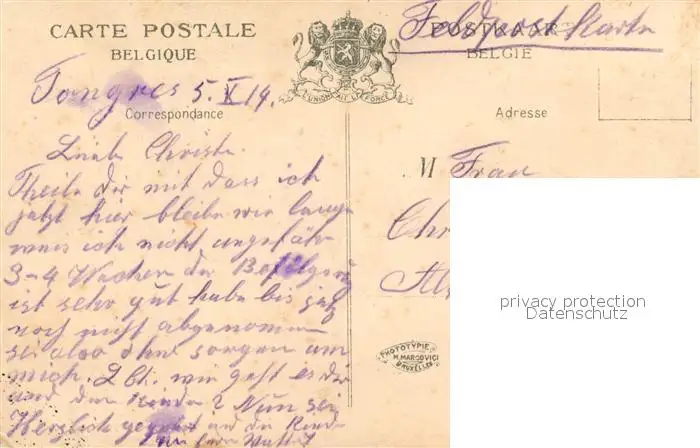 CARTE POSTALE
BELGIQUE
L'UNION FAIT LA FORCE
Feldpostkarte
POSTKAART
BELGIË
Tongres 5. X 14.
Correspondance
Adresse
Liebe Christe.
Theile dir mit dass ich
jetzt hier bleibe wie lange
weis ich nicht ungefähr
3-4 Wochen die Befölgung
ist sehr gut habe bis jetz
noch nicht abgenommen
sei also ohne sorgen um
mich. L Ch. wie geht es dir
und den Kinder? Nun sei
Herzlich gegrüst und die Kind-
M Frau
Chr
PHOTOTYPIE
M. MARCOVICI
BRUXELLES
privacy protection
Datenschutz